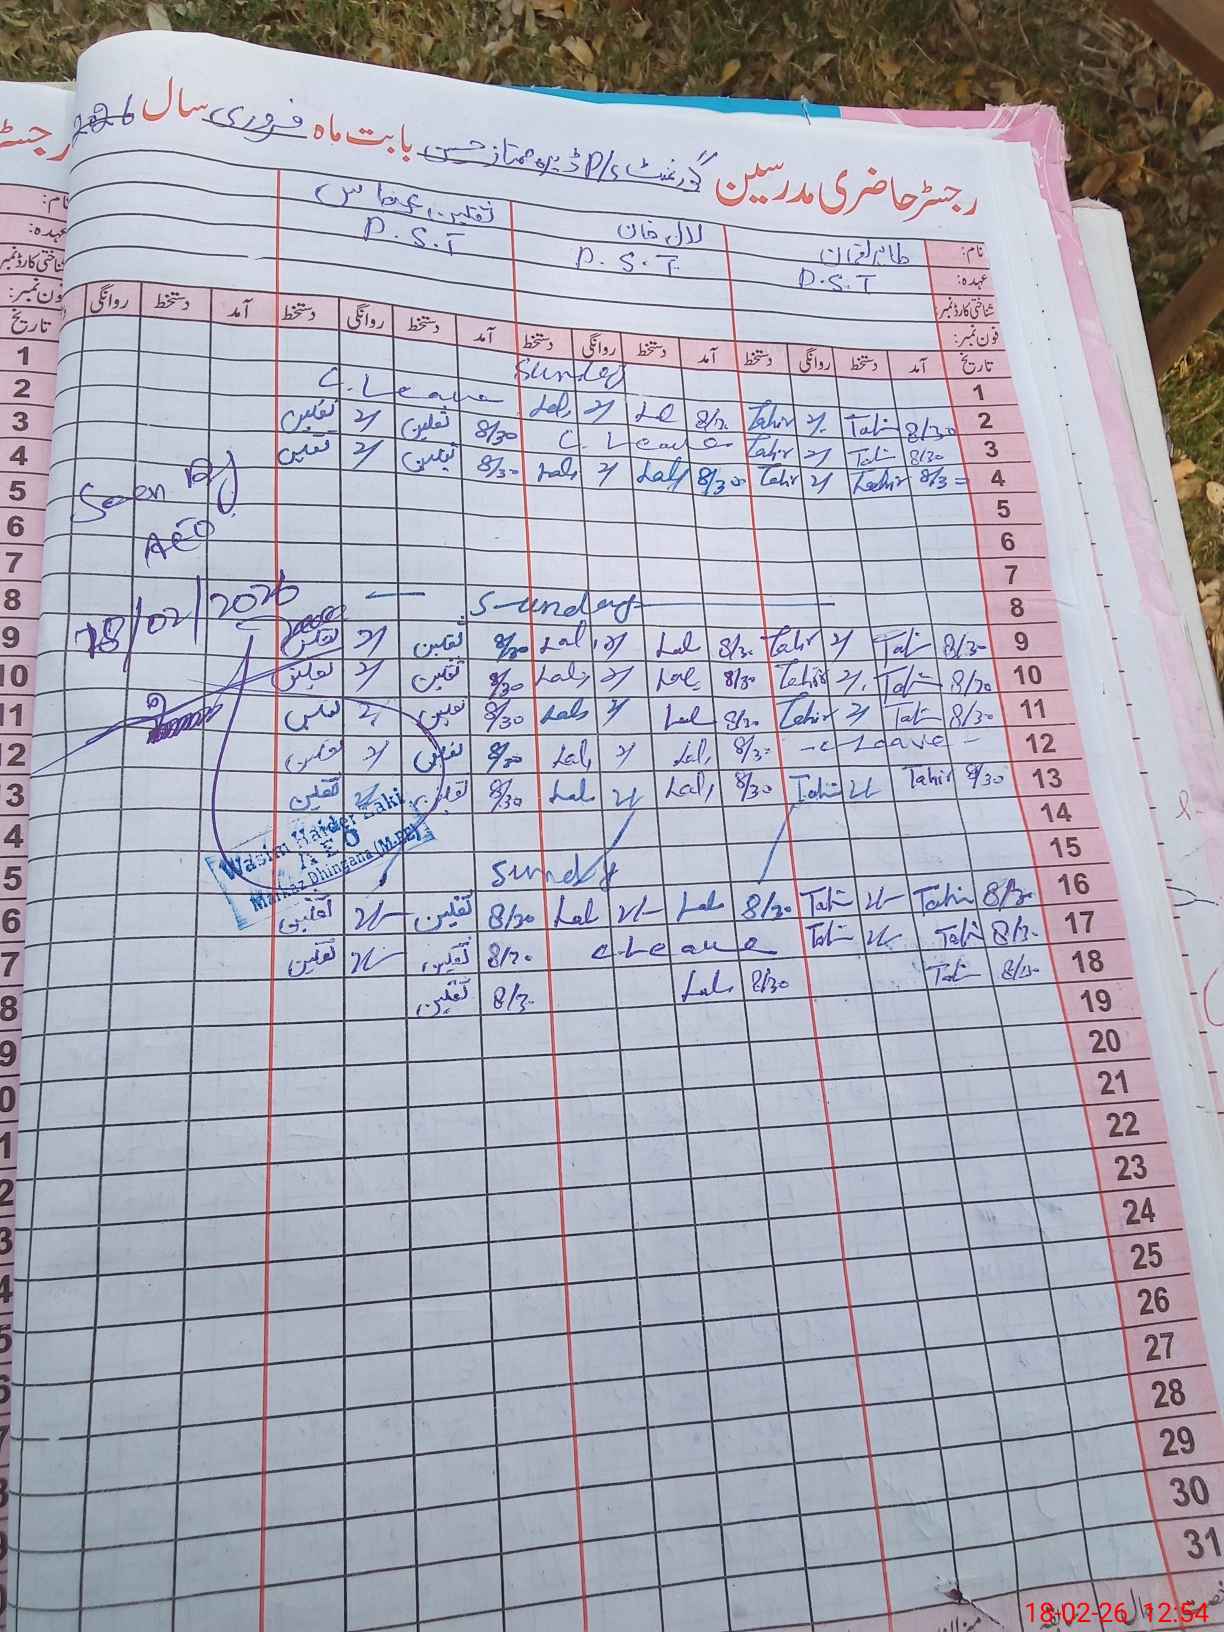 رجسٹر حاضری مدرسین گورنمنٹ P/S ڈیرہ ممتاز حسین بابت ماہ فروری سال 2026
نام: طاہر لقمان لال خان ثقلین عباس
عہدہ: P.S.T P.S.T. P.S.T
شناختی کارڈ نمبر:
فون نمبر:
تاریخ آمد دستخط روانگی دستخط آمد دستخط روانگی دستخط آمد دستخط روانگی دستخط آمد دستخط روانگی
1 Sunday
2 8/30 Tahir 2/. Tahir 8/30 Lal 2/ Lal, C. Leave
3 8/30 Tahir 2/ Tahir C. Leave 8/30 ثقلین 2/ ثقلین
4 8/30 Tahir 2/ Tahir 8/30 Lal, 2/ Lal, 8/30 ثقلین 2/ ثقلین
5
6
7
8 Sunday
9 8/30 Tahir 2/ Tahir 8/30 Lal 2/ Lal, 8/30 ثقلین 2/ ثقلین
10 8/30 Tahir 2/. Tahir 8/30 Lal, 2/ Lal, 8/30 ثقلین 2/ ثقلین
11 8/30 Tahir 2/ Tahir 8/30 Lal 2/ Lal, 8/30 ثقلین 2/ ثقلین
12 - C Leave - 8/30 Lal, 2/ Lal, 8/30 ثقلین 2/ ثقلین
13 8/30 Tahir 2/ Tahir 8/30 Lal, 2/ Lal, 8/30 ثقلین 2/ ثقلین
14
15 Sunday
16 8/30 Tahir 2/- Tahir 8/30 Lal, 2/- Lal 8/30 ثقلین 2/- ثقلین
17 8/30 Tahir 2/- Tahir C Leave 8/30 ثقلین 2/- ثقلین
18 8/30 Tahir 8/30 Lal, 8/30 ثقلین
19
20
21
22
23
24
25
26
27
28
29
30
31
Seen By
AEO
18/02/2026
Wasim Haider Zaki
AEO
Markaz Dhingana (M.EE)
رجسٹر
نام:
عہدہ:
شناختی کارڈ نمبر
فون نمبر:
تاریخ
1
2
3
4
5
6
7
8
9
10
11
12
18-02-26 12:54